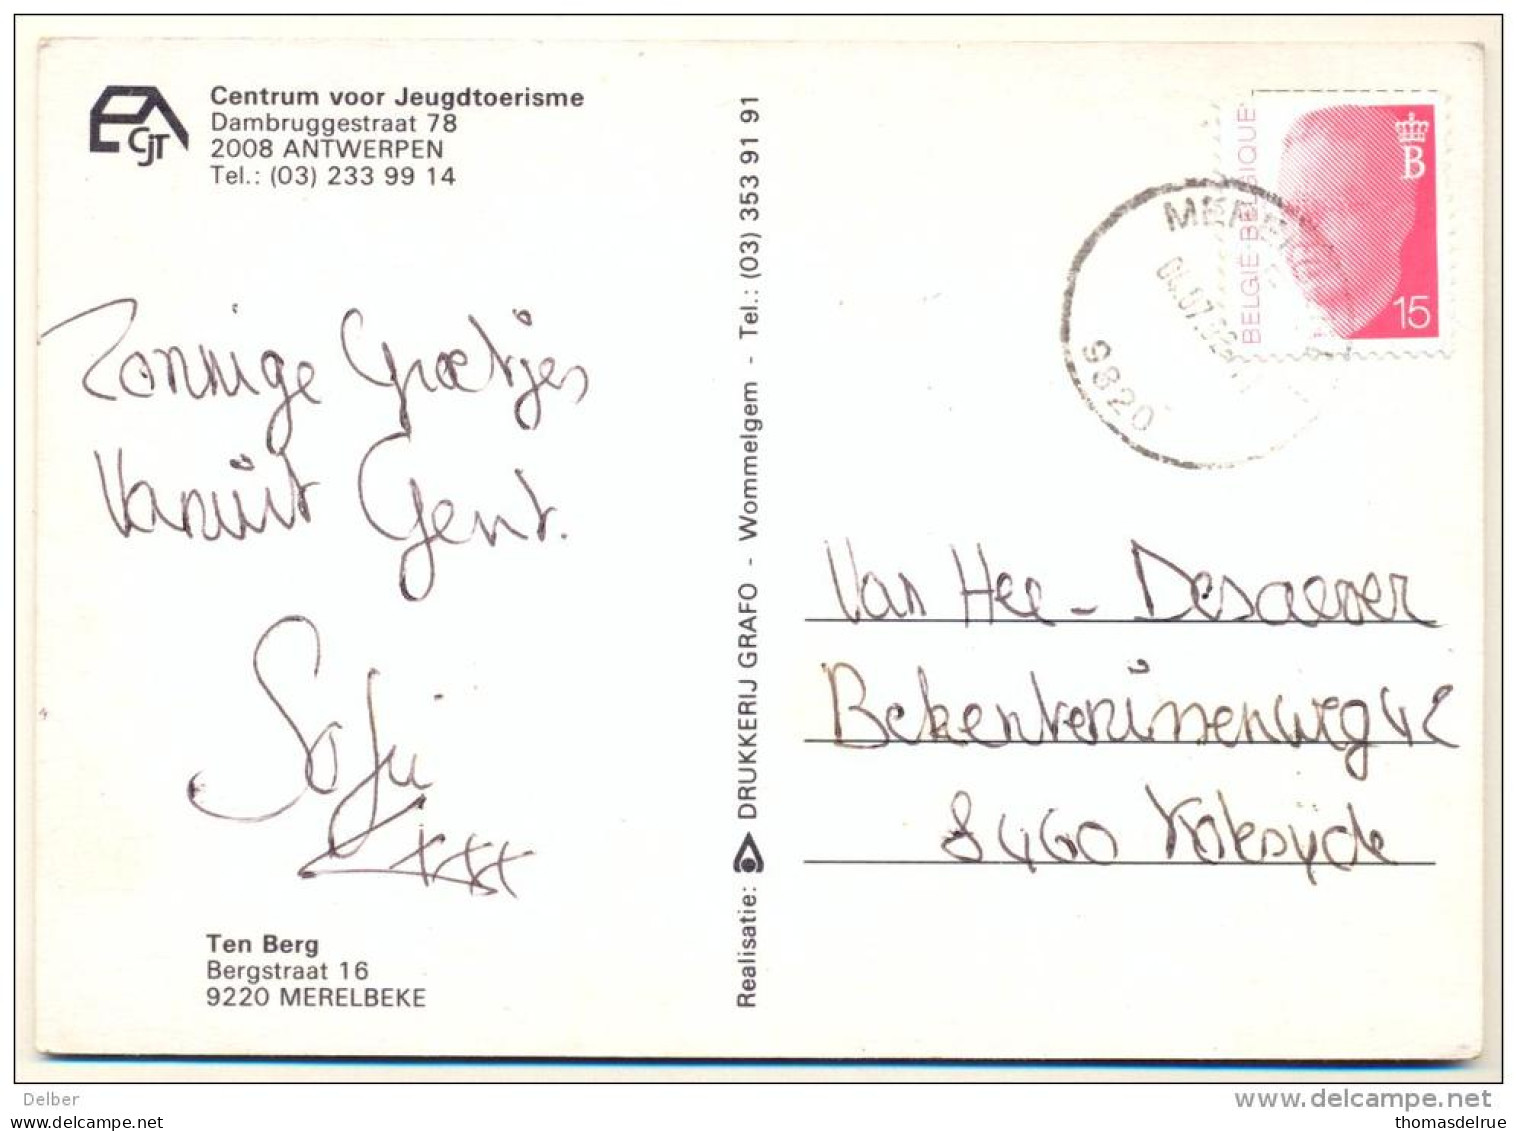 Centrum voor Jeugdtoerisme
Dambruggestraat 78
2008 ANTWERPEN
Tel.: (03) 233 99 14
CJT
Zonnige Groetjes
Vanuit Gent.
Sofie
xxx
Ten Berg
Bergstraat 16
9220 MERELBEKE
Realisatie: DRUKKERIJ GRAFO - Wommelgem - Tel.: (03) 353 91 91
BELGIË-BELGIQUE
B
15
9820
Van Hee - Desaever
8460 Koksijde
Delber
www.delcampe.net
posterij.com
thomasdelrue